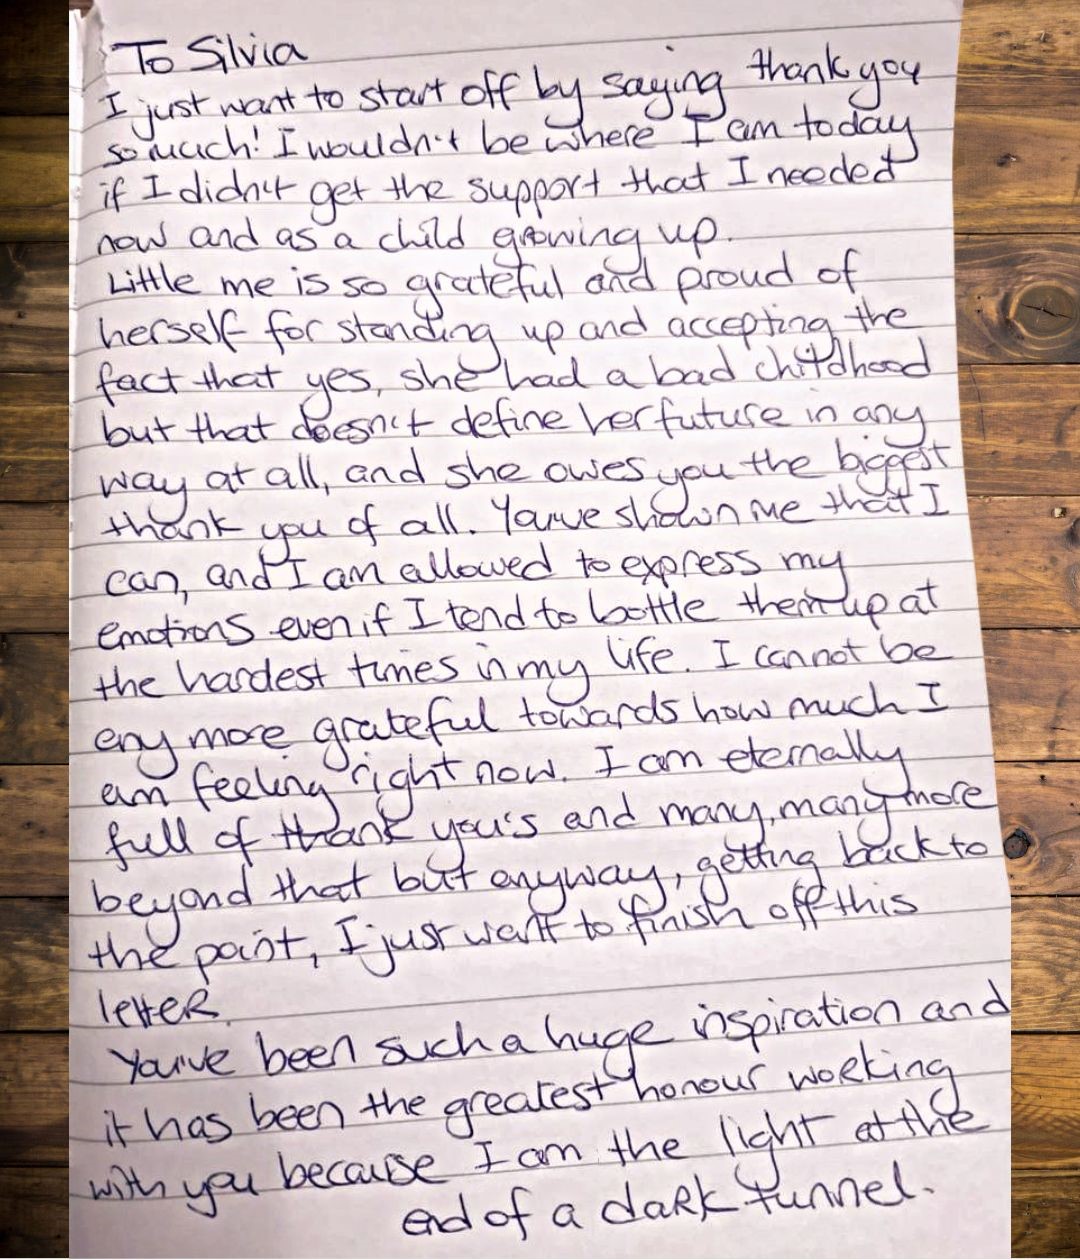 To Silvia
I just want to start off by saying thank you
so much! I wouldn't be where I am today
if I didn't get the support that I needed
now and as a child growing up.
Little me is so grateful and proud of
herself for standing up and accepting the
fact that yes, she had a bad childhood
but that doesn't define her future in any
way at all, and she owes you the biggest
thank you of all. You've shown me that I
can, and I am allowed to express my
emotions even if I tend to bottle them up at
the hardest times in my life. I cannot be
any more grateful towards how much I
am feeling right now. I am eternally
full of thank you's and many, many more
beyond that but anyway, getting back to
the point, I just want to finish off this
letter.
You've been such a huge inspiration and
it has been the greatest honour working
with you because I am the light at the
end of a dark tunnel.